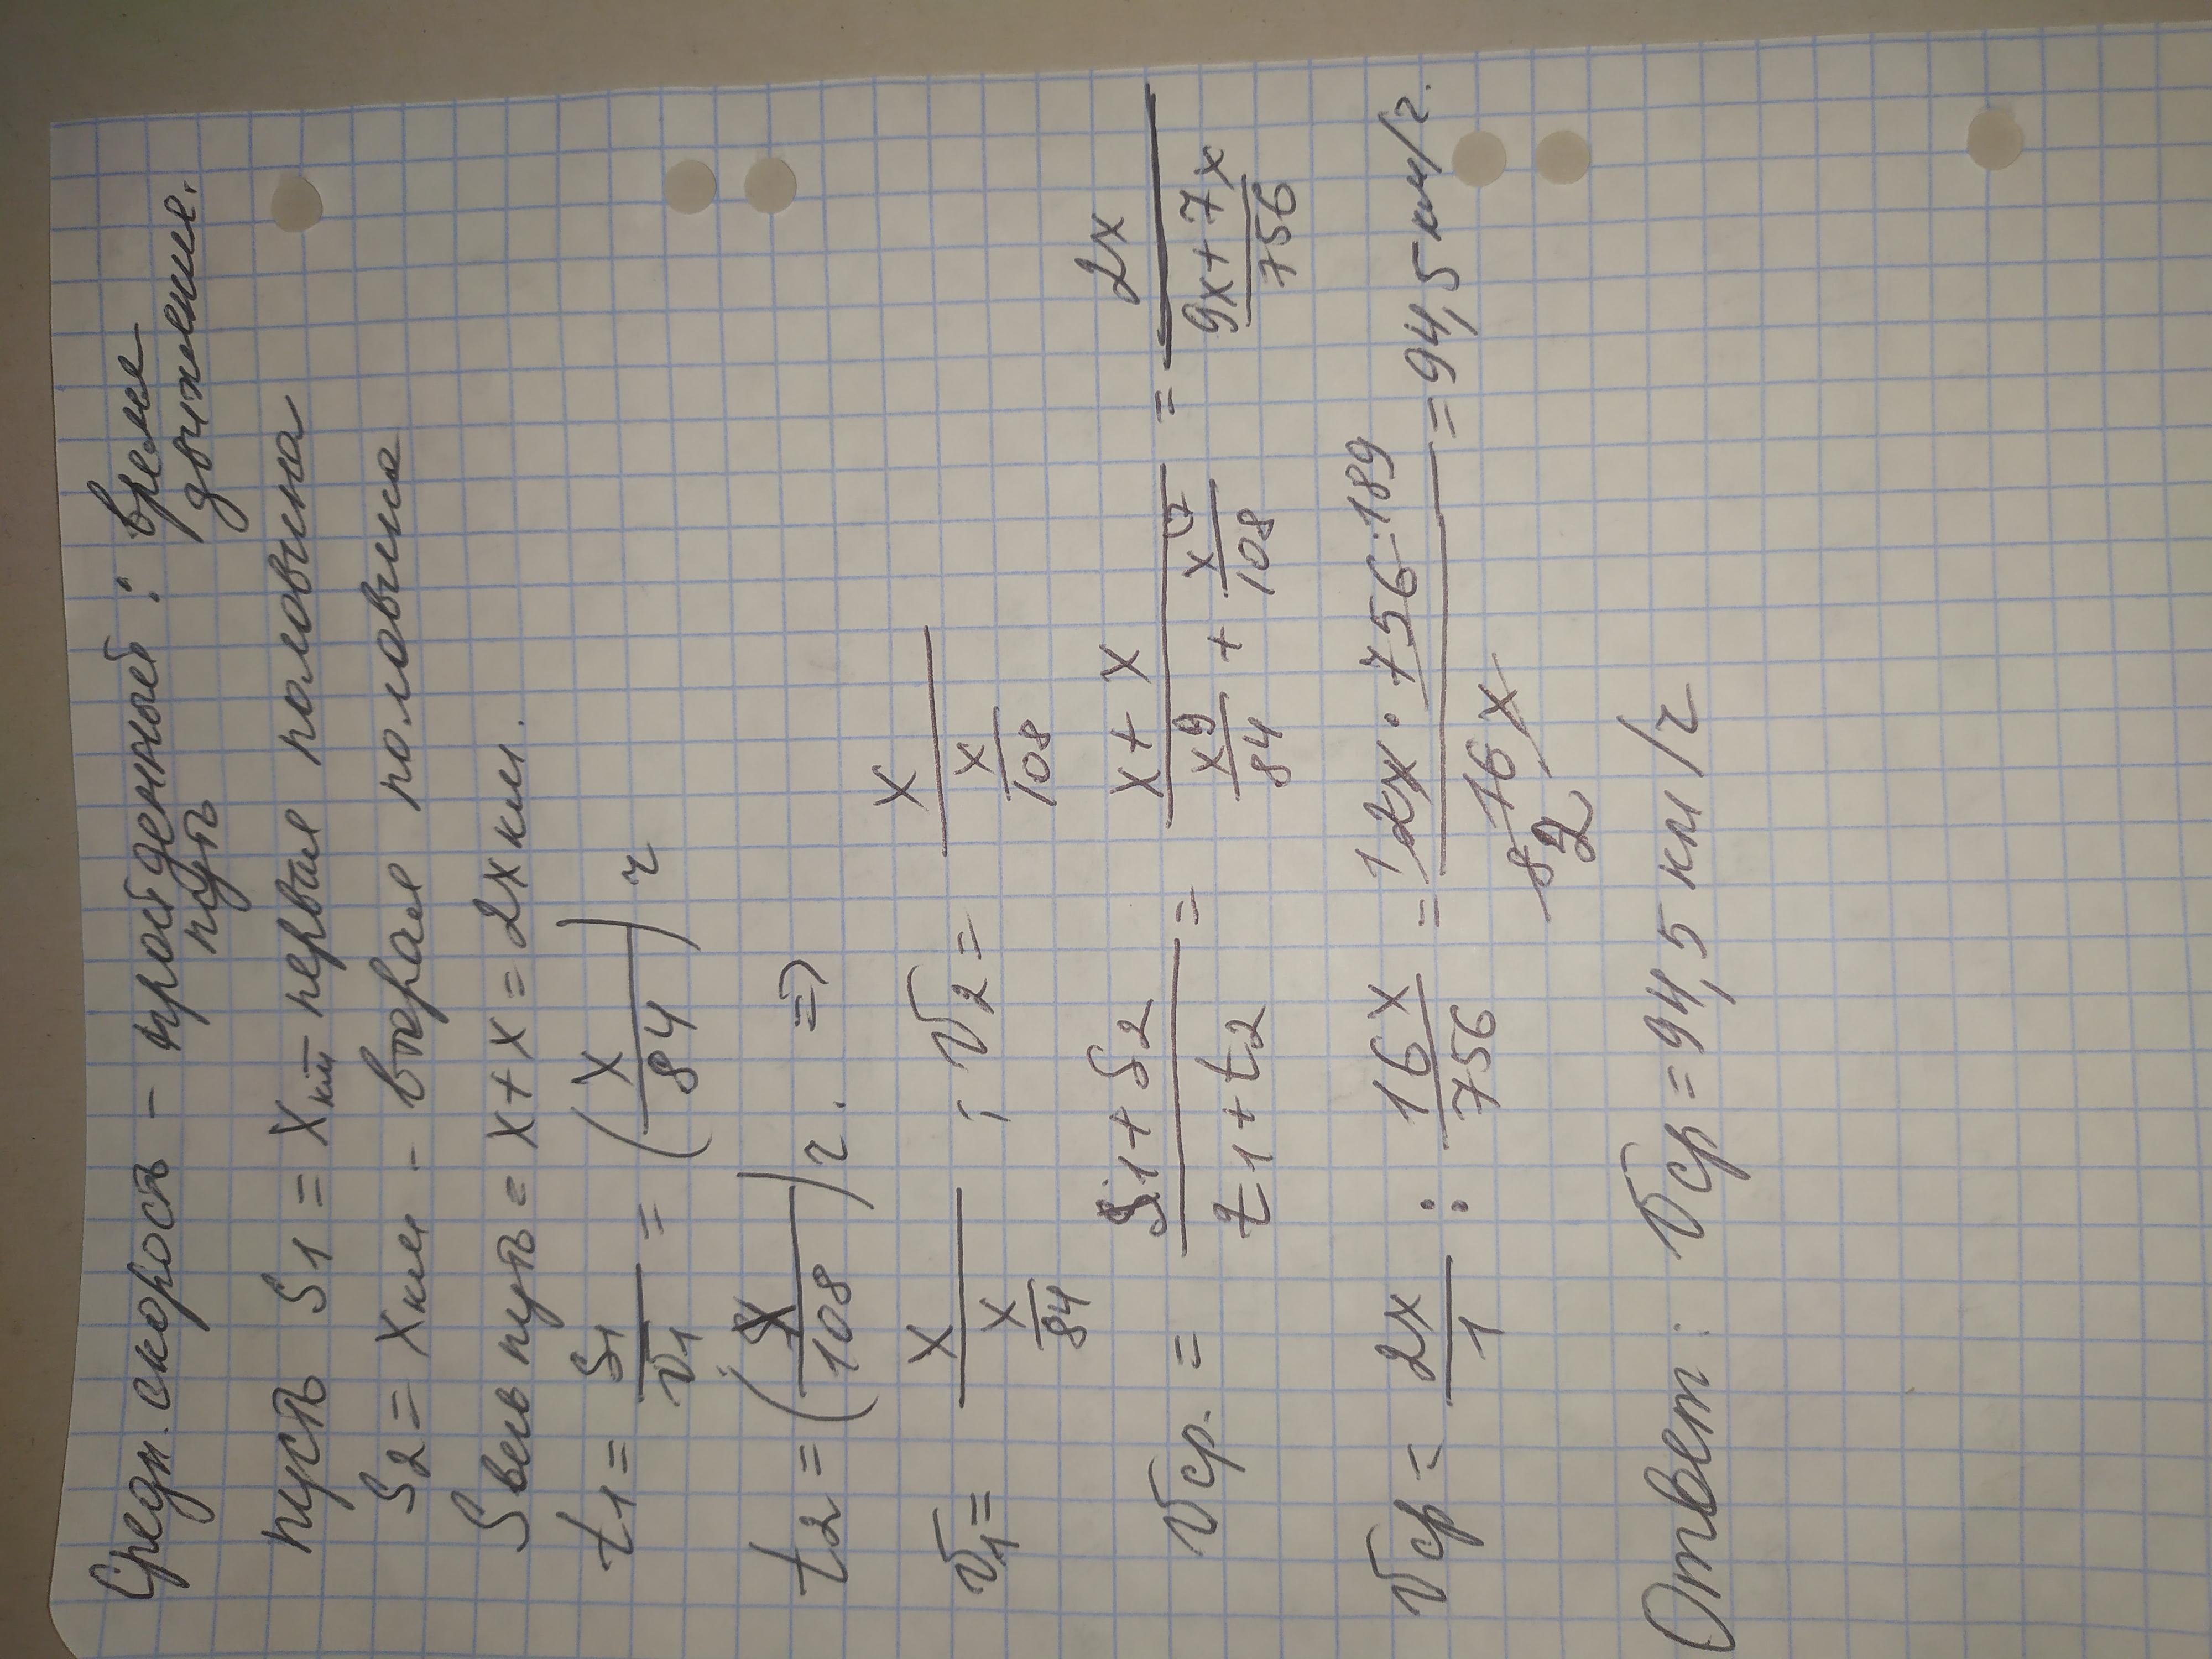 Средн. скорость - пройденный : время
путь движение.
пусть S1 = x км первая половина
S2 = x км - вторая половина
S весь путь = x + x = 2x км.
t1 = S1/V1 = (x/84) ч
t2 = (x/108) ч. =>
V1 = x/(x/84) ; V2 = x/(x/108)
Vср. = (S1 + S2)/(t1 + t2) = (x + x)/(x9/84 + x7/108) = 2x/((9x + 7x)/756)
Vср = 2x/1 : 16x/756 = 1 2x · 756 189/8 16x 2 = 94,5 км/ч.
Ответ: Vср = 94,5 км/ч